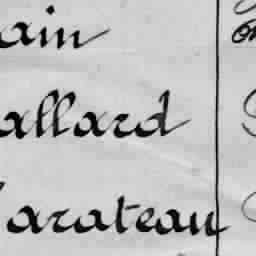 ain
allard
arateau